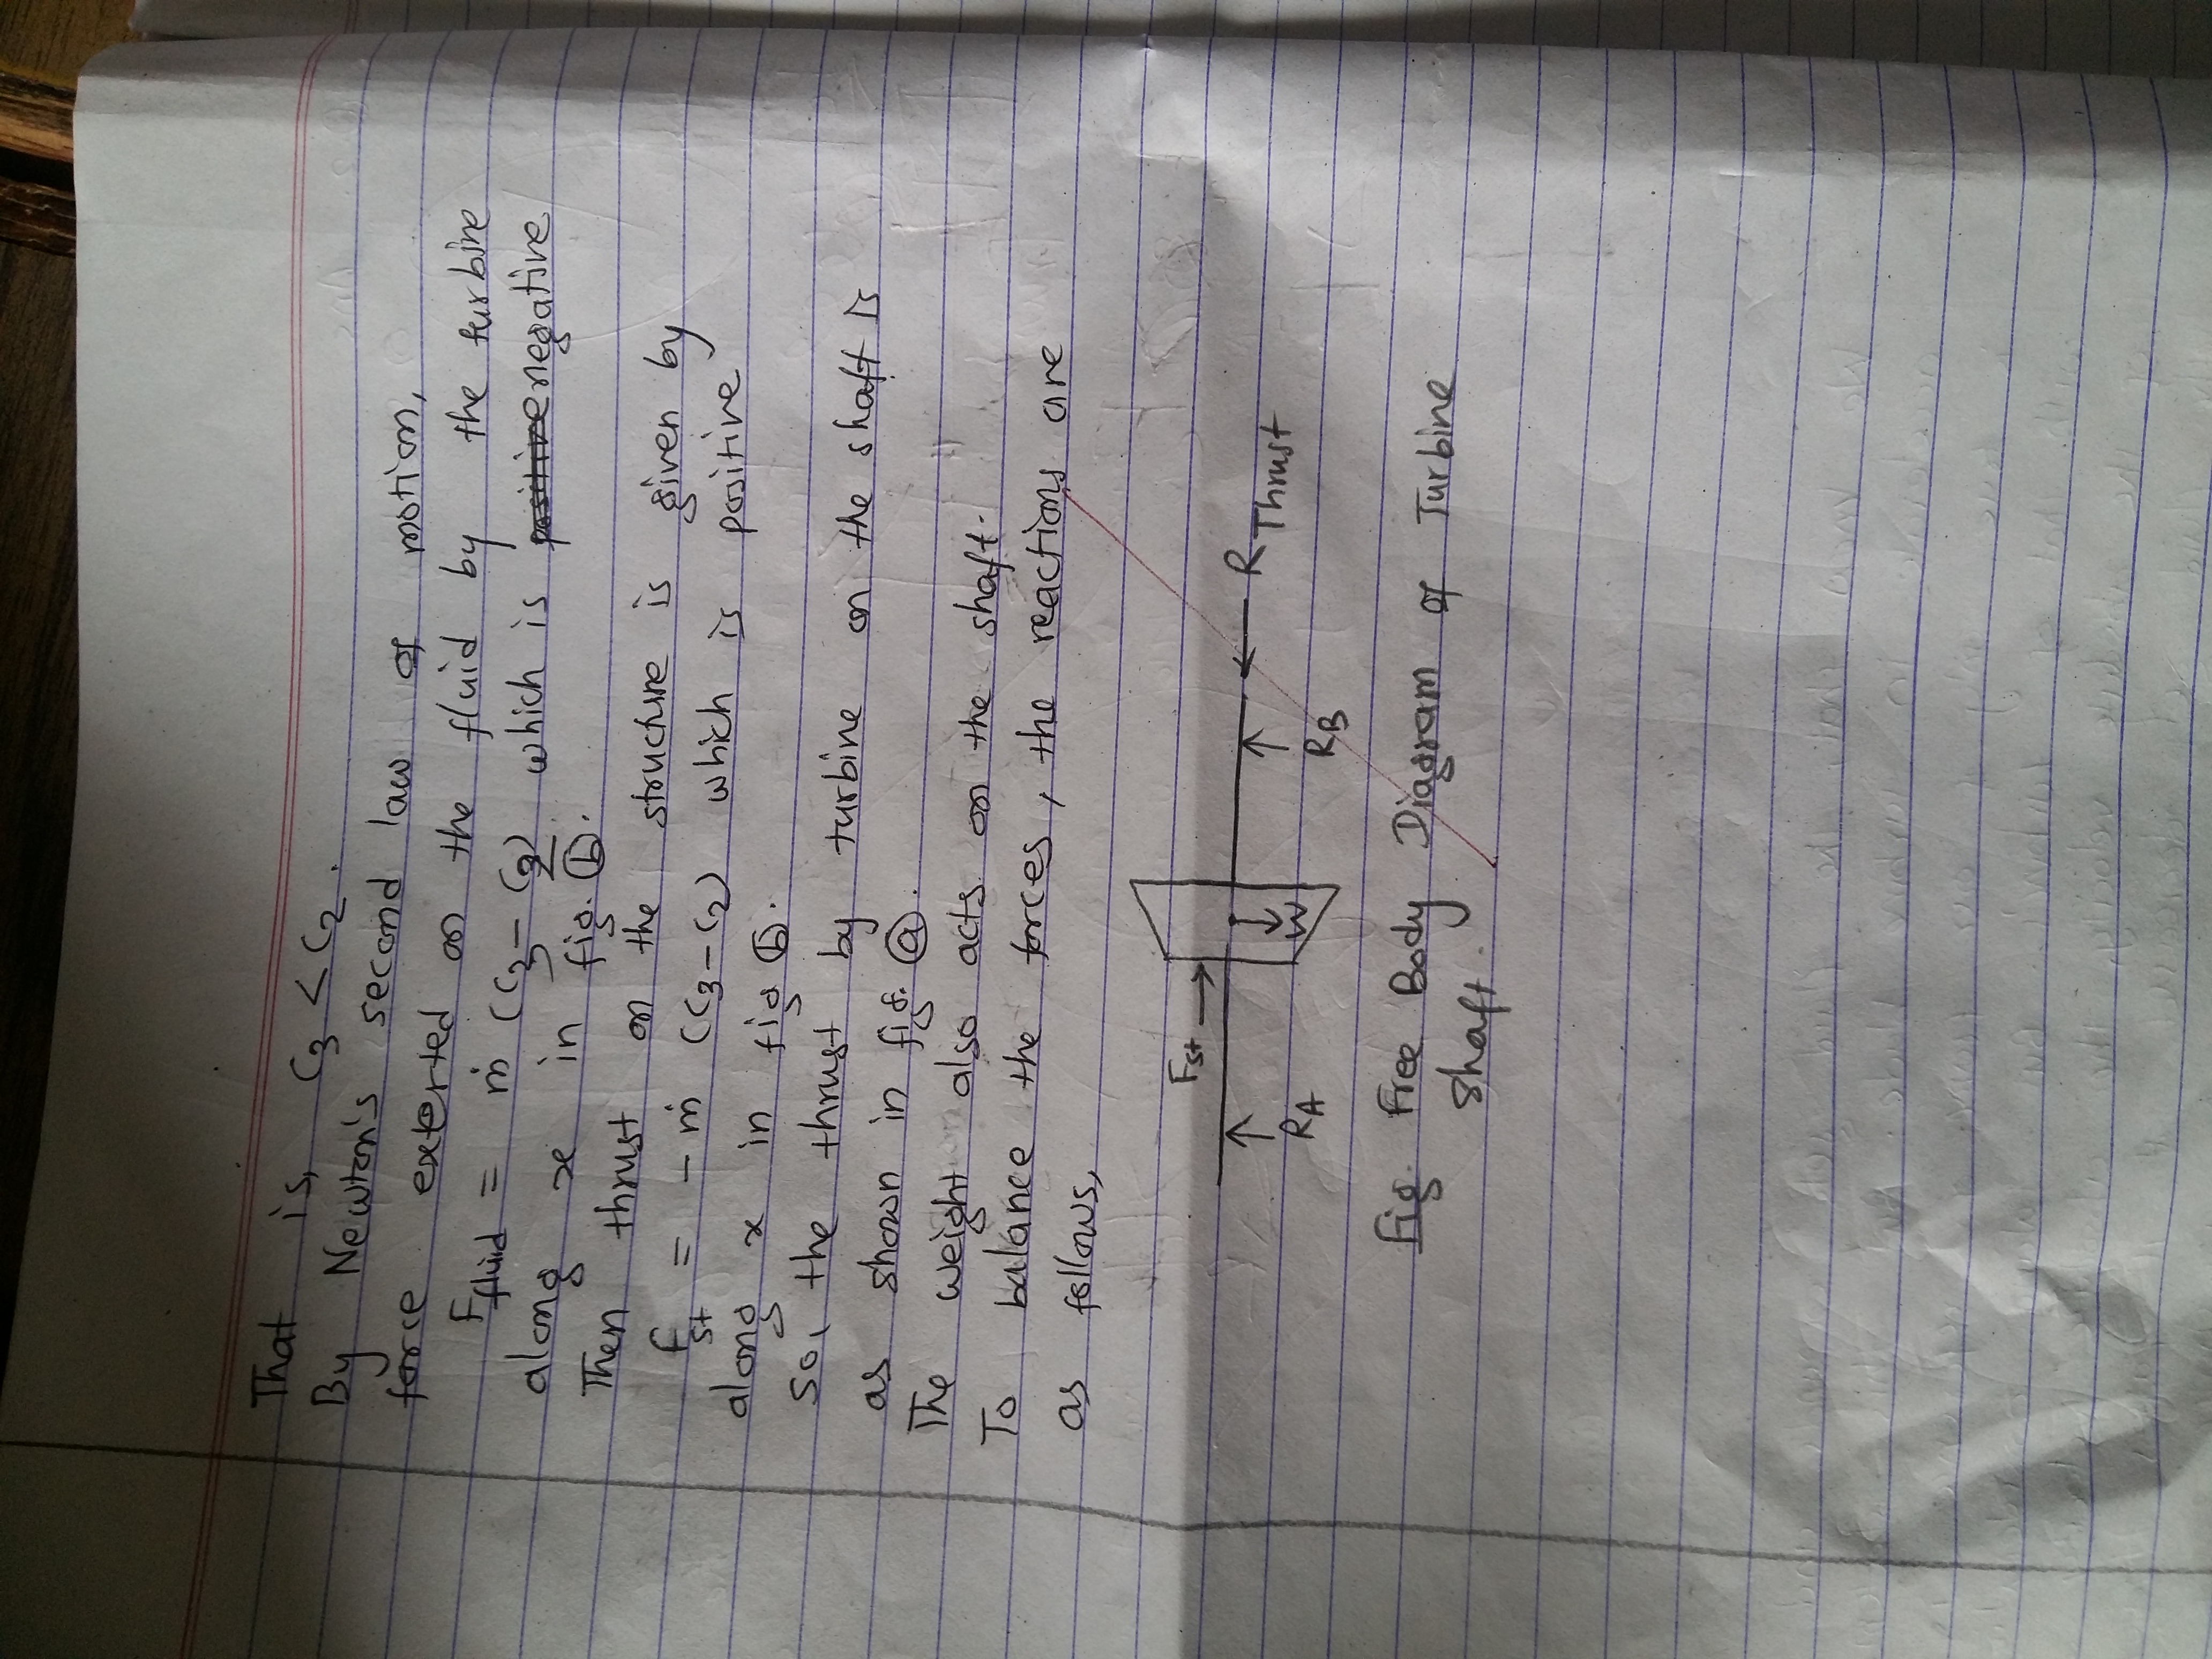 That is, C₃ < C₂.
By Newton's second law of motion,
force exterted on the fluid by the turbine
F_fluid = ṁ (C₃ − C₂) which is negative
along x in fig. ⓑ.
Then thrust on the structure is given by
F_st = − ṁ (C₃ − C₂) which is positive
along x in fig ⓑ.
So, the thrust by turbine on the shaft is
as shown in fig. ⓐ.
The weight also acts on the shaft.
To balance the forces, the reactions are
as follows,
F_st →
R_A
W
R_B
← R_Thrust
Fig. Free Body Diagram of Turbine
Shaft.